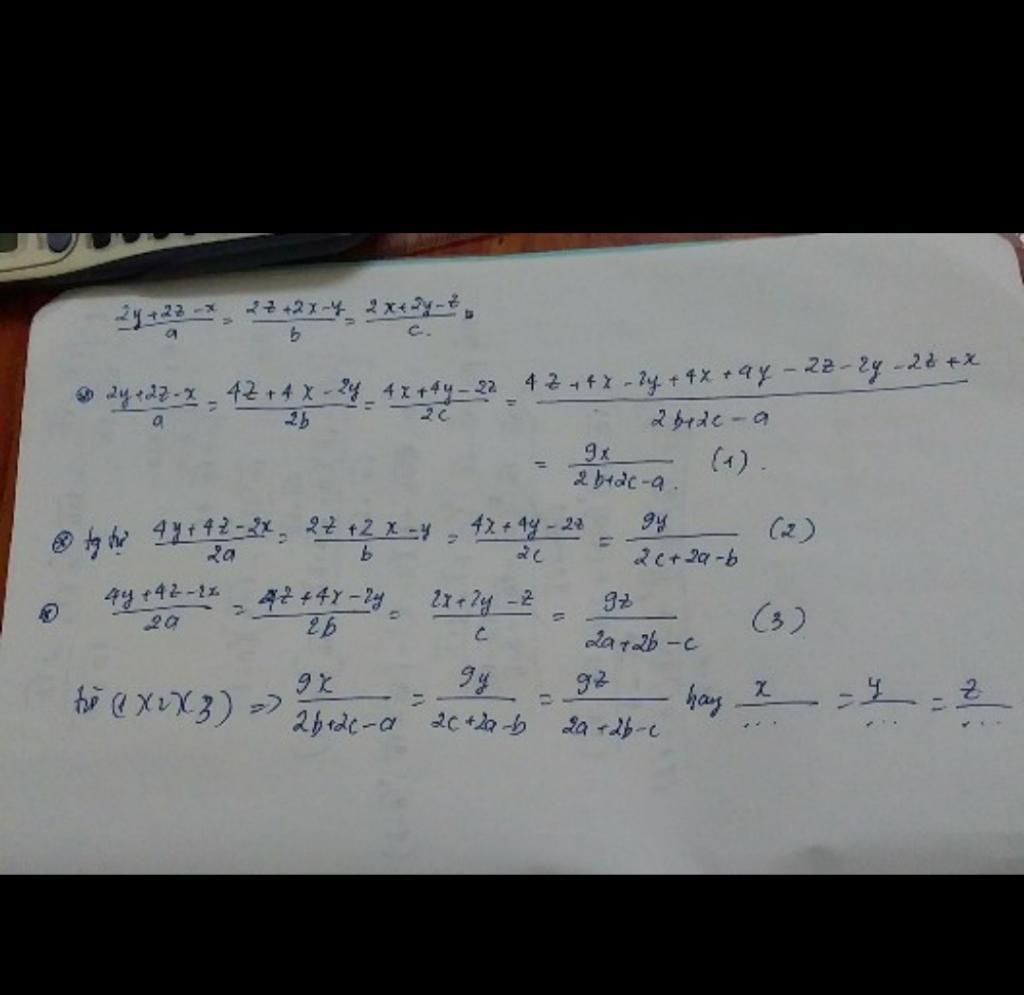 (2y+2z-x)/a = (2z+2x-y)/b = (2x+2y-z)/c
(2y+2z-x)/a = (4z+4x-2y)/2b = (4x+4y-2z)/2c = (4z+4x-2y+4x+4y-2z-2y-2z+x)/(2b+2c-a)
= 9x/(2b+2c-a) (1).
tg tự (4y+4z-2x)/2a = (2z+2x-y)/b = (4x+4y-2z)/2c = 9y/(2c+2a-b) (2)
(4y+4z-2x)/2a = (4z+4x-2y)/2b = (2x+2y-z)/c = 9z/(2a+2b-c) (3)
từ (1)(2)(3) => 9x/(2b+2c-a) = 9y/(2c+2a-b) = 9z/(2a+2b-c) hay x/... = y/... = z/...